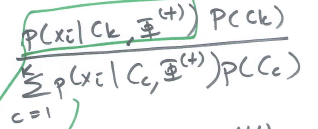 p(xi | Ck, Φ^(t)) P(Ck)
K
Σ p(xi | Cc, Φ^(t)) P(Cc)
c = 1